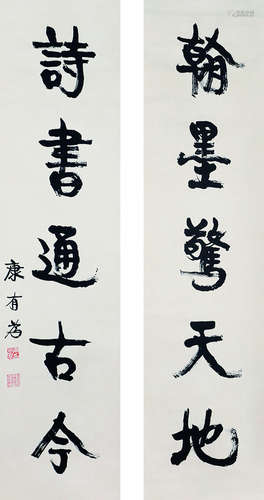 翰墨驚天地
詩書通古今
康有為